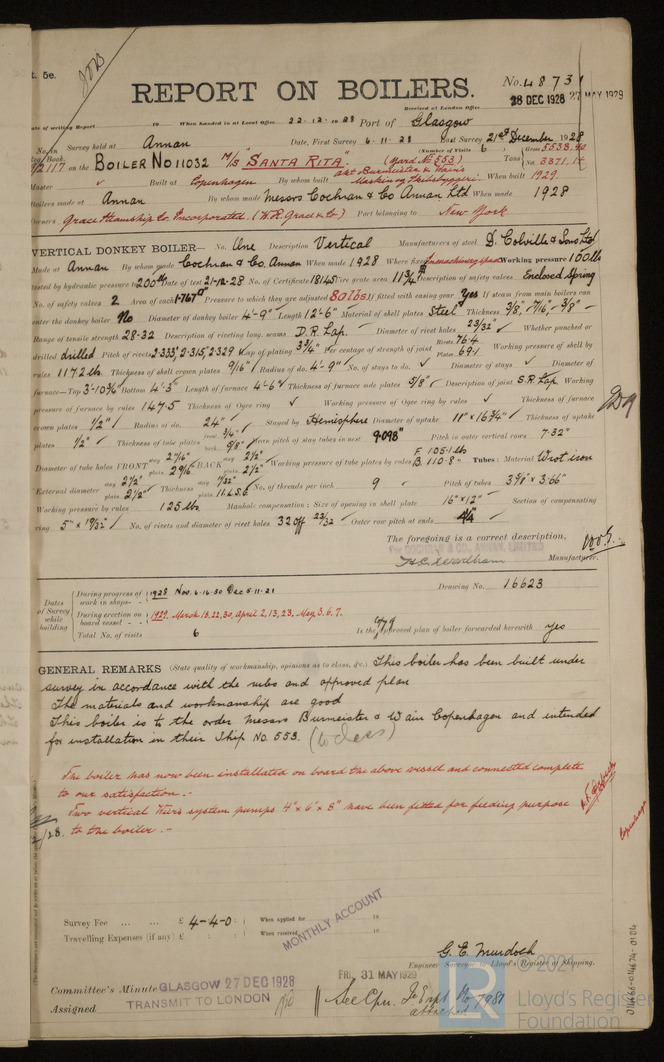 t. 5e.
REPORT ON BOILERS.
No. 48731
Received at London Office 28 DEC 1928 27 MAY 1929
Date of writing Report 19 When handed in at Local Office 22-12-1928 Port of Glasgow
No. in Survey held at Annan Date, First Survey 6-11-28 Last Survey 21st December 1928
Reg. Book. (Number of Visits 6)
on the BOILER No 11032 M/S "SANTA RITA" (Yard No 553) Tons Gross
Net
Master Built at Copenhagen By whom built Akt Burmeister & Wain's When built 1929.
Boilers made at Annan By whom made Messrs Cochran & Co Annan Ltd When made 1928
Owners Grace Steamship Co. Incorporated. (W.R. Grace & Co) Port belonging to New York
VERTICAL DONKEY BOILER— No. One Description Vertical Manufacturers of steel D. Colville & Sons Ltd
Made at Annan By whom made Cochran & Co. Annan When made 1928 Where fixed In machinery space Working pressure 100 lbs
tested by hydraulic pressure to 200 lbs Date of test 21-12-28 No. of Certificate 18145 Fire grate area 11 3/4 Description of safety valves Enclosed Spring
No. of safety valves 2 Area of each 1.767" Pressure to which they are adjusted 80 lbs If fitted with easing gear Yes If steam from main boilers can
enter the donkey boiler No Diameter of donkey boiler 4'-9" Length 12'-6" Material of shell plates Steel Thickness 3/8", 7/16", 3/8"
Range of tensile strength 28-32 Description of riveting long. seams D.R. Lap. Diameter of rivet holes 23/32" Whether punched or
drilled drilled Pitch of rivets 2.333", 2.315", 2.329 Lap of plating 3 3/4" Per centage of strength of joint Rivets 76.4 Plates 69.1 Working pressure of shell by
rules 117.2 lb. Thickness of shell crown plates 9/16" Radius of do. 4'-9" No. of stays to do. ✓ Diameter of stays ✓ Diameter of
furnace—Top 3-10 3/4" Bottom 4'-3" Length of furnace 4'-6" Thickness of furnace side plates 5/8" Description of joint S.R. Lap Working
pressure of furnace by rules 147.5 Thickness of Ogee ring ✓ Working pressure of Ogee ring by rules ✓ Thickness of furnace
crown plates 1/2" Radius of do. 24" Stayed by Hemisphere Diameter of uptake 11" x 16 3/4" Thickness of uptake
plates 1/2" Thickness of tube plates front 3/4" back 5/8" Mean pitch of stay tubes in nest 9.098" Pitch in outer vertical rows 7.32"
Diameter of tube holes FRONT stay 2 7/16" plain 2 9/16 BACK stay 2 1/2" plain 2 1/2" Working pressure of tube plates by rules F. 105.1 lb B. 110.8" Tubes: Material Wrot iron
External diameter stay 2 1/2" plain 2 1/2" Thickness stay 7/32" plain 11 L.S.G No. of threads per inch 9 Pitch of tubes 3 5/8" x 3.66"
Working pressure by rules 125 lbs. Manhole compensation: Size of opening in shell plate 16" x 12" Section of compensating
ring. 5" x 19/32" No. of rivets and diameter of rivet holes 32 off 23/32 Outer row pitch at ends
The foregoing is a correct description,
For COCHRAN & CO., ANNAN, LIMITED
Manufacturer.
Dates of Survey while building
During progress of work in shops- - 1928 Nov. 6.16.30 Dec 5.11.21
During erection on board vessel - - 1929. March 18, 22, 30, April 2, 13, 23, May 3, 6, 7.
Total No. of visits 6
Drawing No. 16623
Is the approved plan of boiler forwarded herewith yes
GENERAL REMARKS (State quality of workmanship, opinions as to class, &c.) This boiler has been built under
survey in accordance with the rules and approved plan
The materials and workmanship are good
This boiler is to the order Messrs Burmeister & Wain Copenhagen and intended
for installation in their Ship No. 553.
The boiler has now been installed on board the above vessel and connected complete
to our satisfaction.-
Two vertical Weirs system pumps 4" x 6" x 8" have been fitted for feeding purpose
to the boiler.-
Copenhagen
Survey Fee ... ... £ 4-4-0: When applied for 19
Travelling Expenses (if any) £ : : When received 19
MONTHLY ACCOUNT
G. E. Murdoch
Engineer Surveyor to Lloyd's Register of Shipping.
Committee's Minute GLASGOW 27 DEC 1928
FRI. 31 MAY 1929
Assigned TRANSMIT TO LONDON
See Cpn. Rpt No 7981
attached
© 2021
LR
Lloyd's Register
Foundation